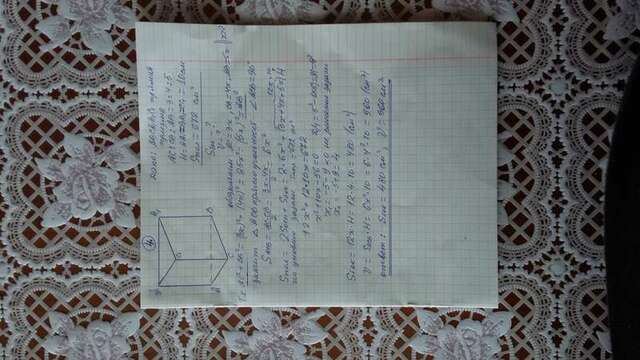 4
Дано: ABCA₁B₁C₁ прямая
призма
AC:CB:BA = 3:4:5
H = AA₁=BB₁=CC₁ = 10см
Sполн = 672 см²
Sбок - ?
V = ?
обозначим AC=3x, CB=4x, AB=5x
т.к. AC²+CB² = (3x)²+(4x)² = 25x² = (5x)² = AB²
значит △ACB прямоугольный ∠ACB=90°
Sосн = AC·CB/2 = 3x·4x/2 = 6x²
Sполн = 2Sосн + Sбок = 2·6x² + (3x+4x+5x)H
по условию задачи Sполн = 672 см²
12x² + 12·10x = 672
x²+10x-56=0
x₁ = -5-9 <0 не решение задачи
x₂ = -5+9 = 4
Sбок = 12x·H = 12·4·10 = 480 (см²)
V = Sосн·H = 6x²·10 = 6·4²·10 = 960 (см³)
ответ: Sбок = 480 см², V = 960 см³